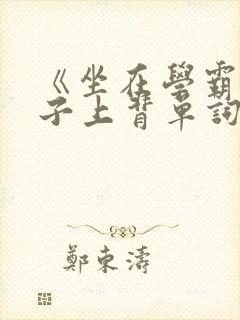 《坐在學霸
子上背單詞
鄭東濤